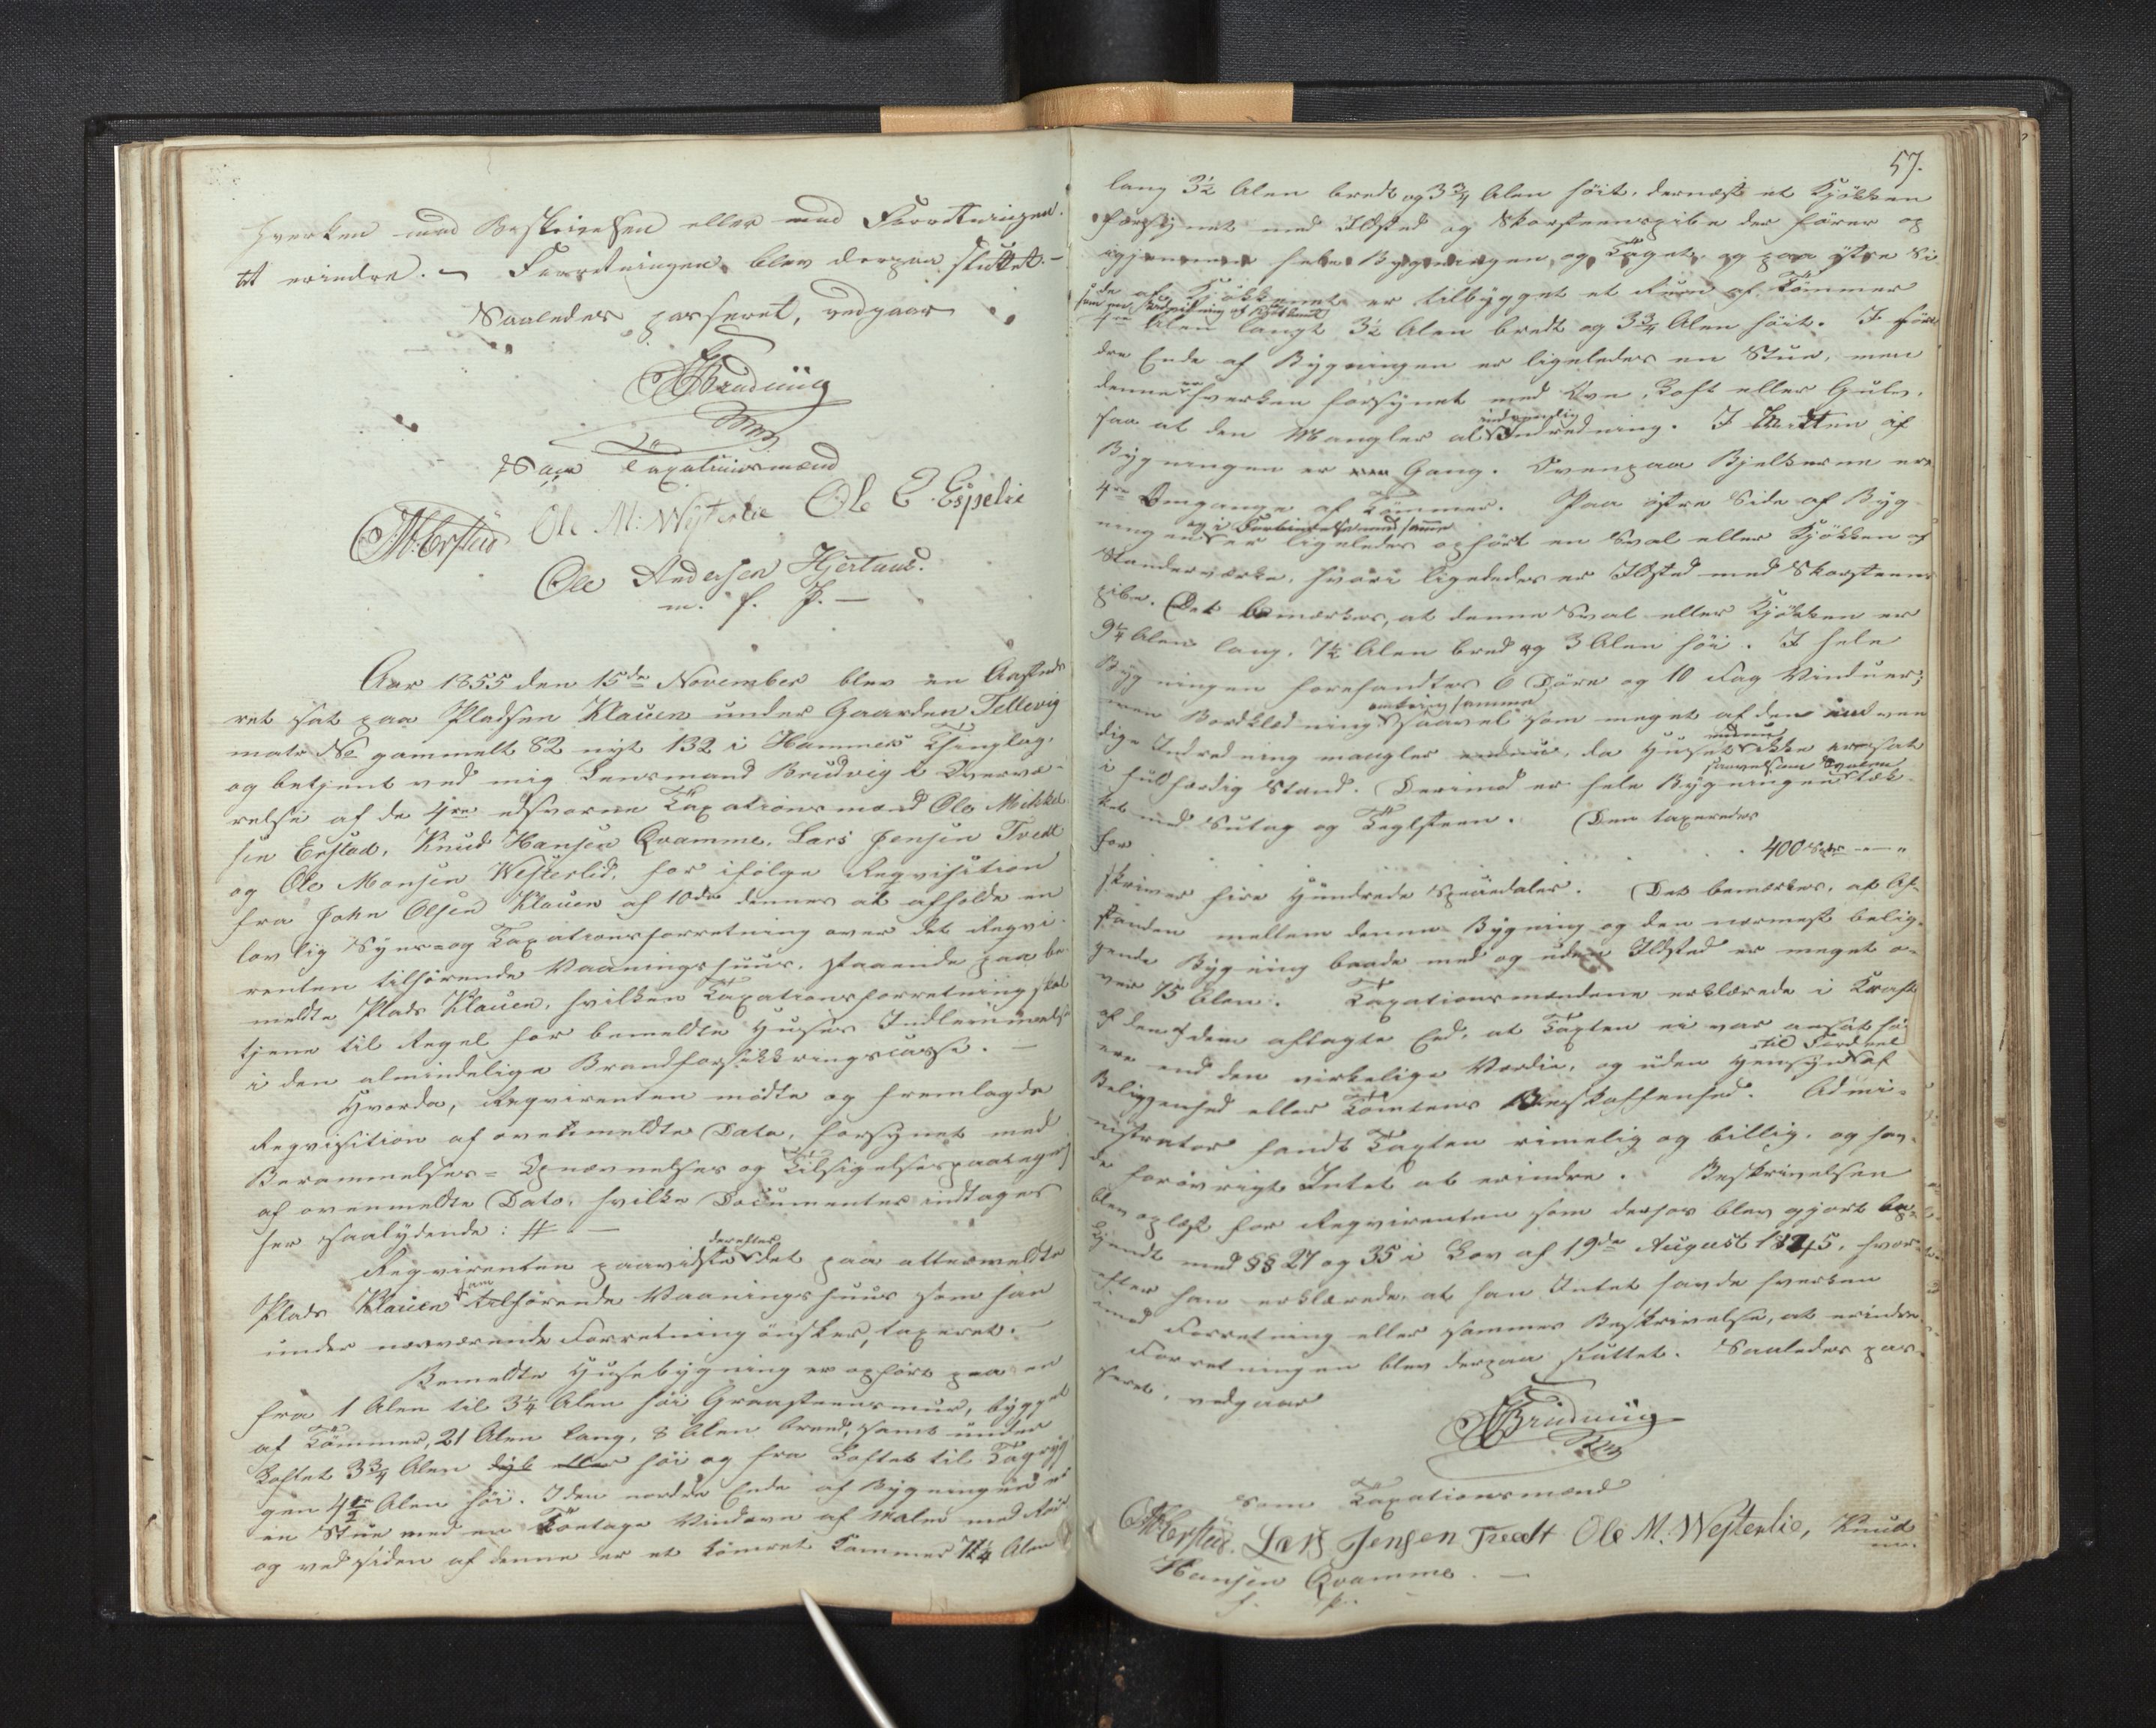 hverken med Beskrivelsen eller med Forretningen
at erindre. – Forretningen blev derpaa sluttet. –
Saaledes passeret, vedgaar
Brudvig
Som Taxationsmænd
Ole M: Westerlie Ole E. Espelie
Ole Andersen Hjertaas.
m. f. P. –
Aar 1855 den 15de November blev en Aasteds
ret sat paa Pladsen Klauen under Gaarden Tellevig
matr No gammelt 82 nyt 132 i Hammers Thinglag,
og betjent ved mig Lensmand Brudvig i Overvæ-
relse af de 4re edsvorne Taxationsmænd Ole Mikkel
sen Erstad, Knud Hansen Qvamme, Lars Jensen Tvedt
og Ole Monsen Westerlid, for ifølge Reqvisition
fra John Olsen Klauen af 10de dennes at afholde en
lovlig Syns- og Taxationsforretning over det Reqvi-
renten tilhørende Vaaningshuus, staaende paa be-
meldte Plads Klauen, hvilken Taxationsforretning skal
tjene til Regel for bemeldte Huses Indlemmelse
i den almindelige Brandforsikkringscasse. –
Hvorda, Reqvirenten mødte og fremlagde
Reqvisition af ovenmeldte Dato, forsynet med
Berammelses- Opnævnelses og Tilsigelsespaategn
af ovenmeldte Dato, hvilke Documenter indtages
her saalydende: # –
derefter
Reqvirenten paaviste det paa attermeldte
ham
Plads Klauen tilhørende Vaaningshuus som han
under nærværende Forretning ønsker, taxeret. –
Bemeldte Husebygning er opført paa en
fra 1 Alen til 3¼ Alen høi Graasteensmur, bygget
af Tømmer, 21 Alen lang, 8 Alen bred, samt under
Loftet 3¾ Alen dyb eller høi og fra Loftet til Tagryg
gen 4½ Alen høi. I den nordre Ende af Bygningen er
en Stue med en Toetages Vindovn af Malm med Rør
og ved siden af denne er et tømret Kammer 7¼ Alen
57.
lang 3½ Alen bredt og 3¾ Alen høit, dernæst et Kjøkken
forsynet med Ildsted og Skorsteenspibe der fører op
igjennem hele Bygningen og Taget, og paa østre Si
de af Kjøkkenet er tilbygget et Rum af Tømmer
4re Alen langt 3½ Alen bredt og 3¾ Alen høit. I søn
dre Ende af Bygningen er ligeledes en Stue, men
er
denne hverken forsynet med Ovn, Loft eller Gulv,
indvendig
saa at den Mangler al Indredning. I Midten af
Bygningen er en Gang. Ovenpaa Bjelkerne ere
4re Omgange af Tømmer. Paa østre Side af Byg
og i Forbindelse med samme
ningen er ligeledes opført en Sval eller Kjøkken af
Standerværke, hvori ligeledes er Ildsted med Skorsteens
pibe. Det bemærkes, at denne Sval eller Kjøkken er
9¼ Alen lang, 7½ Alen bred og 3 Alen høi. I hele
Bygningen forefandtes 6 Døre og 10 Fag Vinduer;
omkring samme
men Bordklædning saavel som meget af den indven
endnu
dige Indredning mangler endnu, da Huset ikke er sat
saavelsom Svalen
i fuldfærdig Stand. Derimod er hele Bygningen tæk-
ket med Sutag og Teglsteen. Den taxeredes
for 400 Spdr – "
skriver fire Hundrede Speciedaler. Det bemærkes, at Af-
standen mellem denne Bygning og den nærmest belig-
gende Bygning baade med og uden Ildsted er meget o-
ver 75 Alen. Taxationsmændene erklærede i Kraft
af den af dem aflagte Eed, at Taxten ei var ansat hø
til Fordeel
ere end den virkelige Værdie, og uden Hensyn af
Beliggenhed eller Tomtens Beskaffenhed. Admi-
nistrator fandt Taxten rimelig og billig, og hav-
de forøvrigt Intet at erindre. Beskrivelsen
blev oplæst for Reqvirenten som derhos blev gjort be-
kjendt med §§ 27 og 35 i Lov af 19de August 1845, hvor-
efter han erklærede, at han Intet havde hverken
mod Forretning eller sammes Beskrivelse, at erindre.
Forretningen blev derpaa sluttet. Saaledes pas-
seret, vedgaar
Brudvig
Som Taxationsmænd
Lars Jensen Tvedt Ole M. Westerlie, Knud
Hansen Qvamme. – m.
f. p.